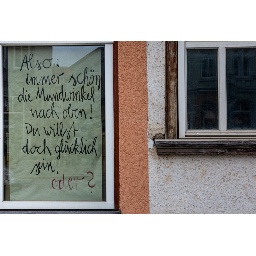 Also:
immer schön
die Mundwinkel
nach oben!
Du willst
doch glücklich
sein,
oder?